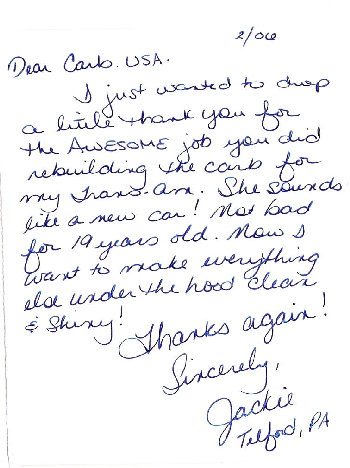 2/06
Dear Carb. USA.
I just wanted to drop
a little thank you for
the AWESOME job you did
rebuilding the carb for
my Trans-Am. She sounds
like a new car! Not bad
for 19 years old. Now I
want to make everything
else under the hood clean
& shiny!
Thanks again!
Sincerely,
Jackie
Telford, PA